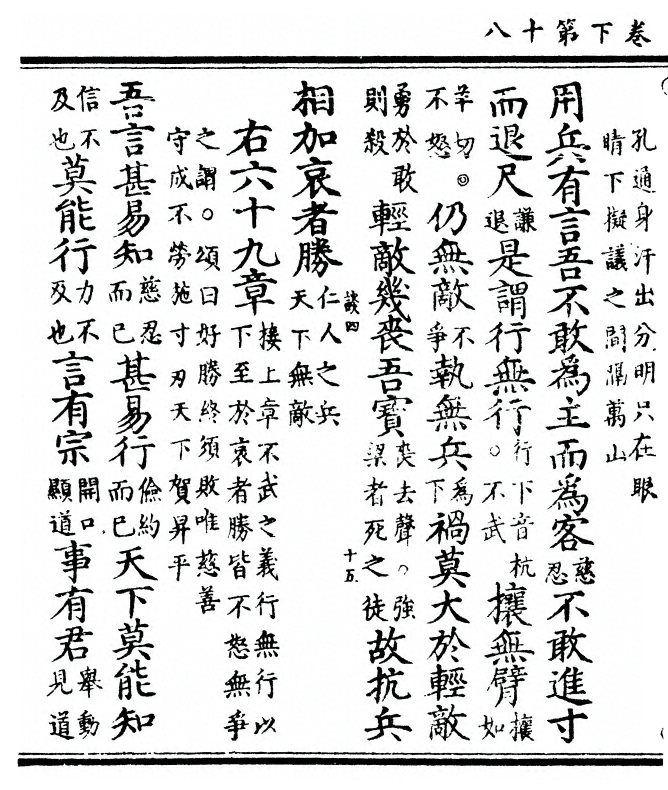 卷下第十八
孔通身汗出分明只在眼
睛下擬議之間隔萬山
用兵有言吾不敢為主而為客慈忍不敢進寸
而退尺謙退是謂行無行行下音杭。不武攘無臂攘如
羊切。◎不怒仍無敵不爭執無兵為下禍莫大於輕敵
勇於敢則殺輕敵幾喪吾寶喪去聲。強梁者死之徒故抗兵
談四 十五
相加哀者勝仁人之兵天下無敵
右六十九章接上章不武之義行無行以下至於哀者勝皆不怒無爭
之謂。頌曰好勝終須敗唯慈善
守成不勞施寸刃天下賀昇平
吾言甚易知慈忍而已甚易行儉約而已天下莫能知
信不及也莫能行力不及也言有宗開口顯道事有君舉動見道